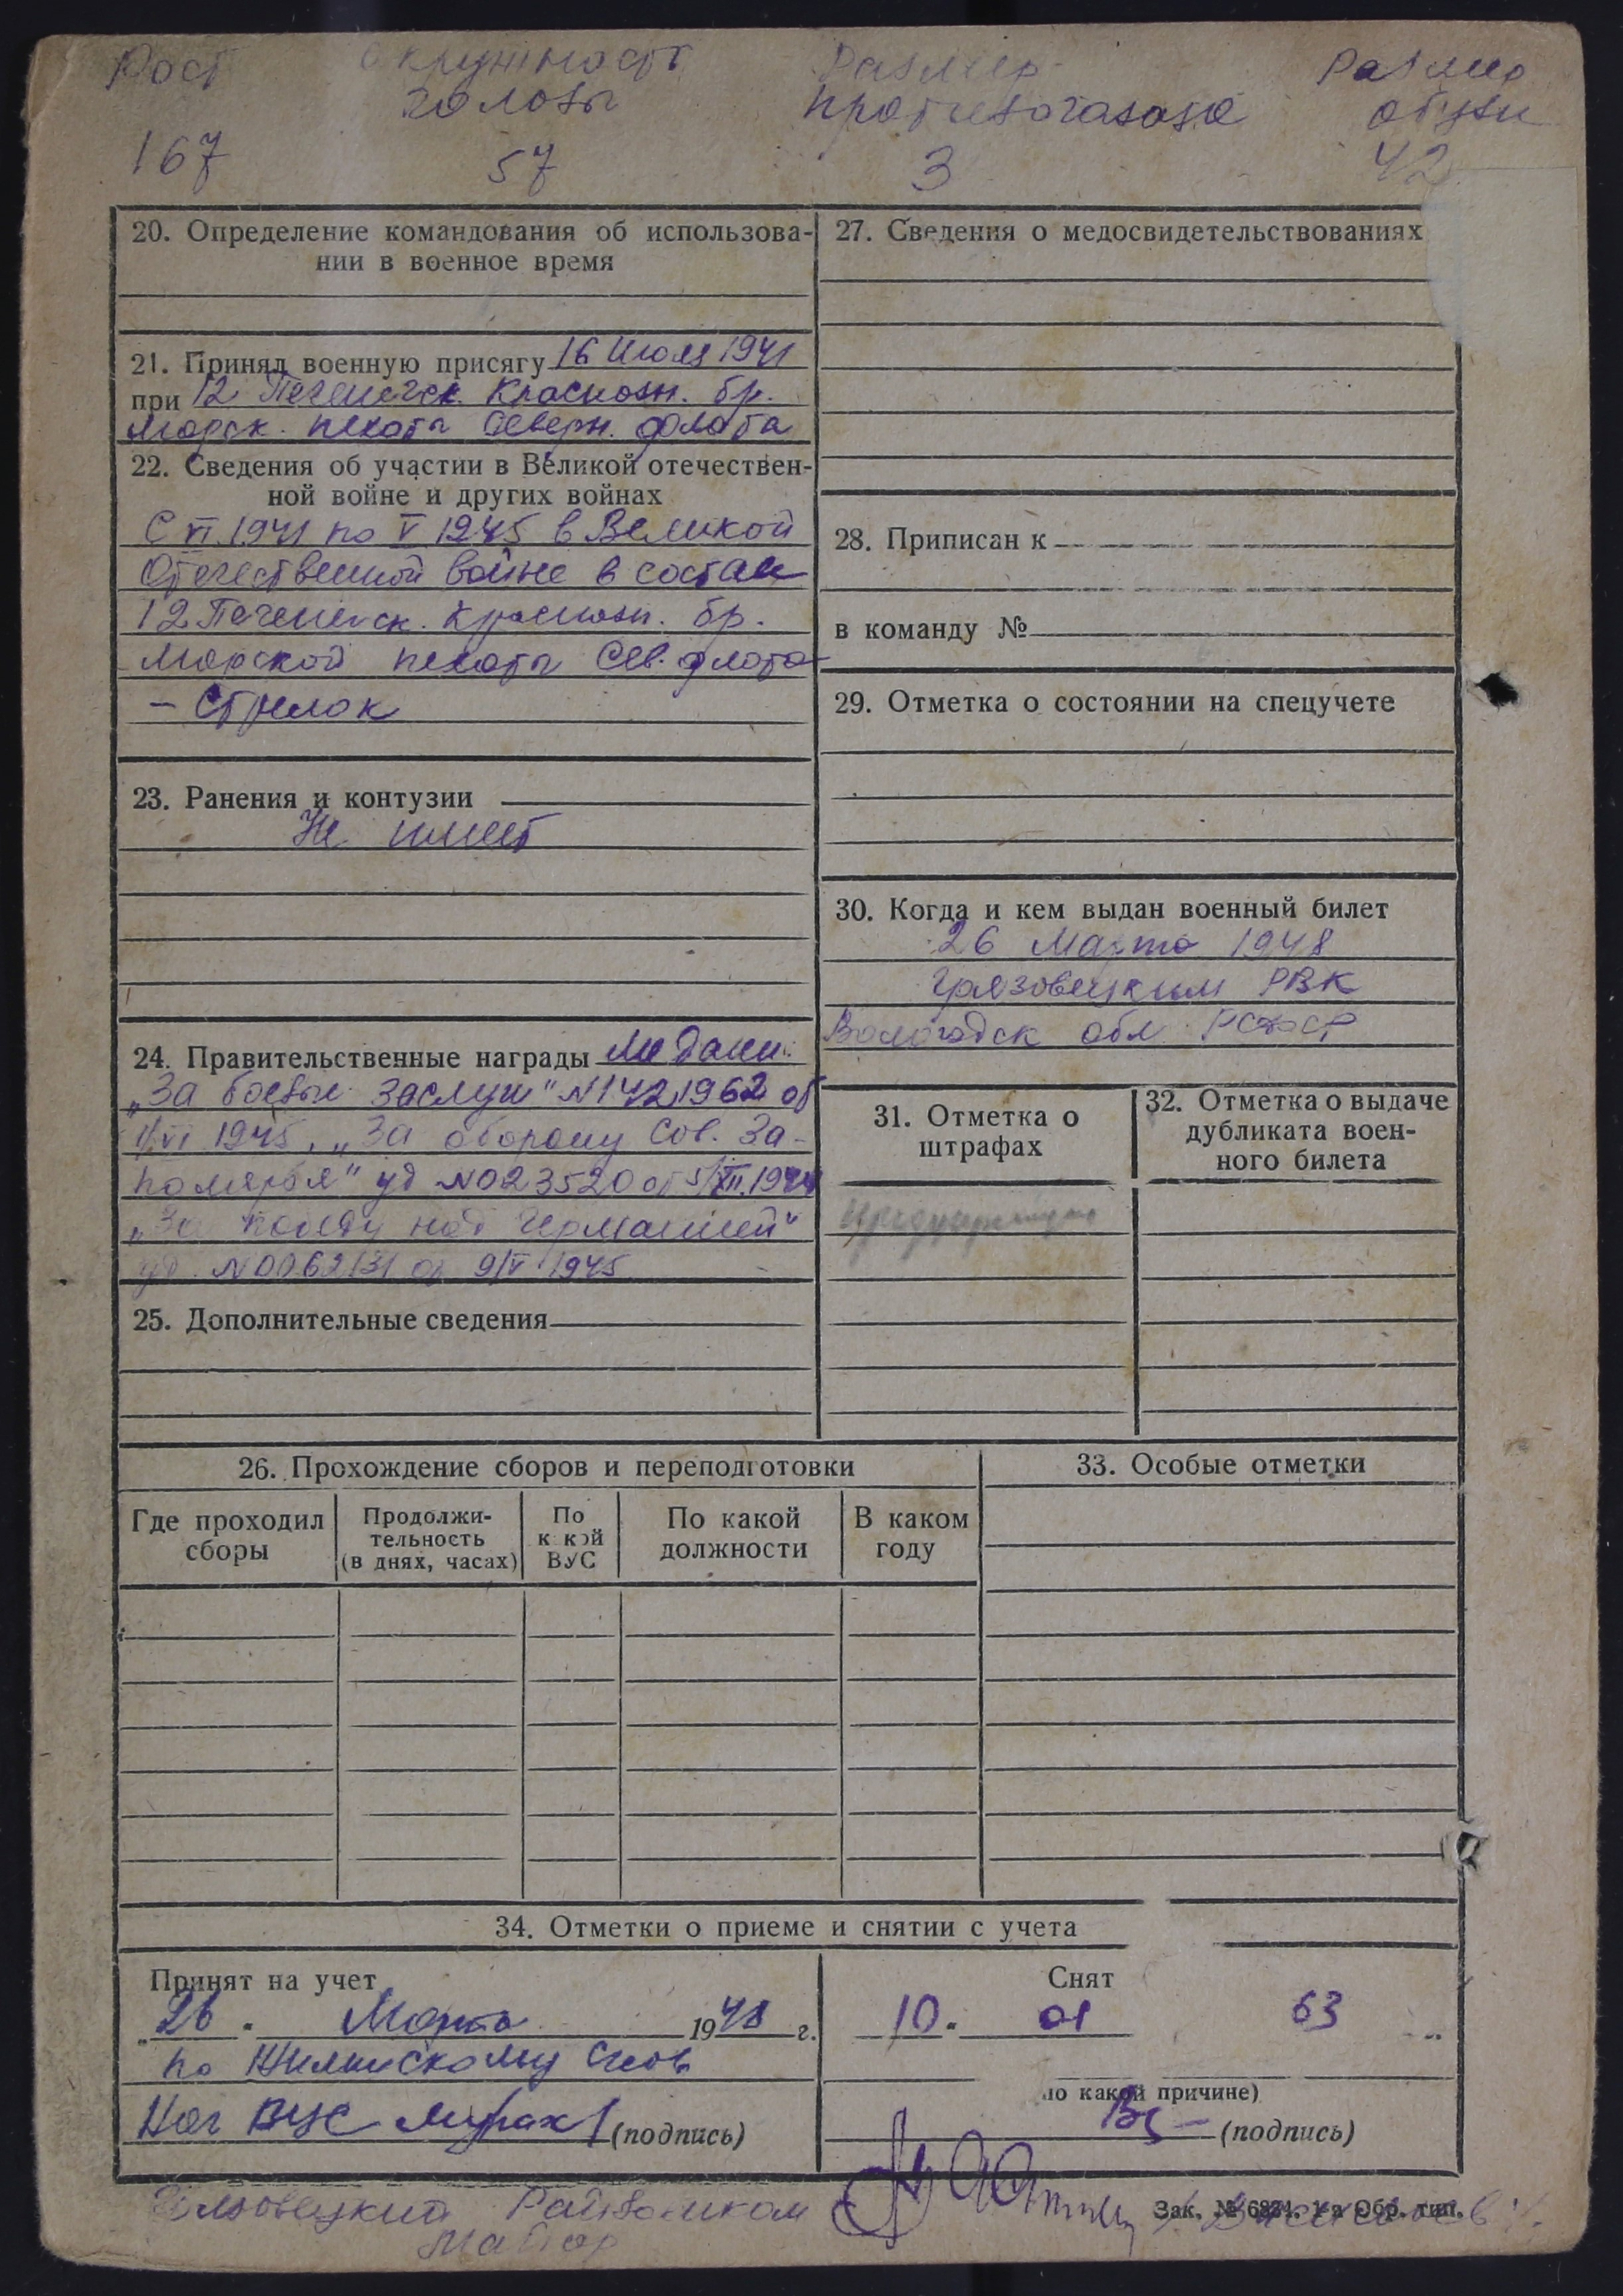 Рост Окружность Размер Размер
головы противогаза обуви
167 57 3 42
20. Определение командования об использова-
нии в военное время
21. Принял военную присягу 16 Июля 1941
при 12 Печенегск. Краснозн. бр.
морск. пехоты Северн. флота
22. Сведения об участии в Великой отечествен-
ной войне и других войнах
С VI 1941 по V 1945 в Великой
Отечественной войне в составе
12 Печенегск. Краснозн. бр.
Морской пехоты Сев. флота
- Стрелок
23. Ранения и контузии
Не имеет
24. Правительственные награды Медали:
„За боевые заслуги" N 1421962 от
VI 1945, „За оборону Сов. За-
полярья" уд N 023520 от 5/XII.1944
„За победу над Германией"
уд. N 0062131 от 9/V 1945
25. Дополнительные сведения
27. Сведения о медосвидетельствованиях
28. Приписан к
в команду №
29. Отметка о состоянии на спецучете
30. Когда и кем выдан военный билет
26 Марта 1948
Грязовецким РВК
Вологодск обл. РСФСР
31. Отметка о
штрафах
32. Отметка о выдаче
дубликата воен-
ного билета
26. Прохождение сборов и переподготовки
Где проходил
сборы
Продолжи-
тельность
(в днях, часах)
По
к кой
ВУС
По какой
должности
В каком
году
33. Особые отметки
34. Отметки о приеме и снятии с учета
Принят на учет
„26" Марта 1948 г.
по
Нач ВУС (подпись)
Снят
10. 01 63
по какой причине)
(подпись)
Грязовецкий Райвоенком
Майор
Зак. № 6824. 1-я Обр. тип.